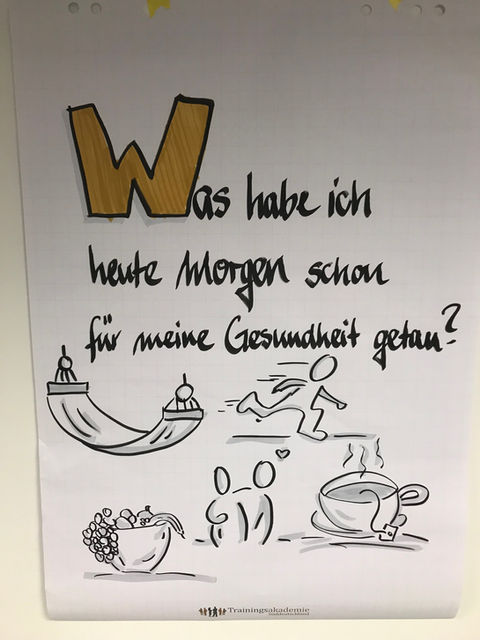 Was habe ich
heute Morgen schon
für meine Gesundheit getan?
Trainingsakademie